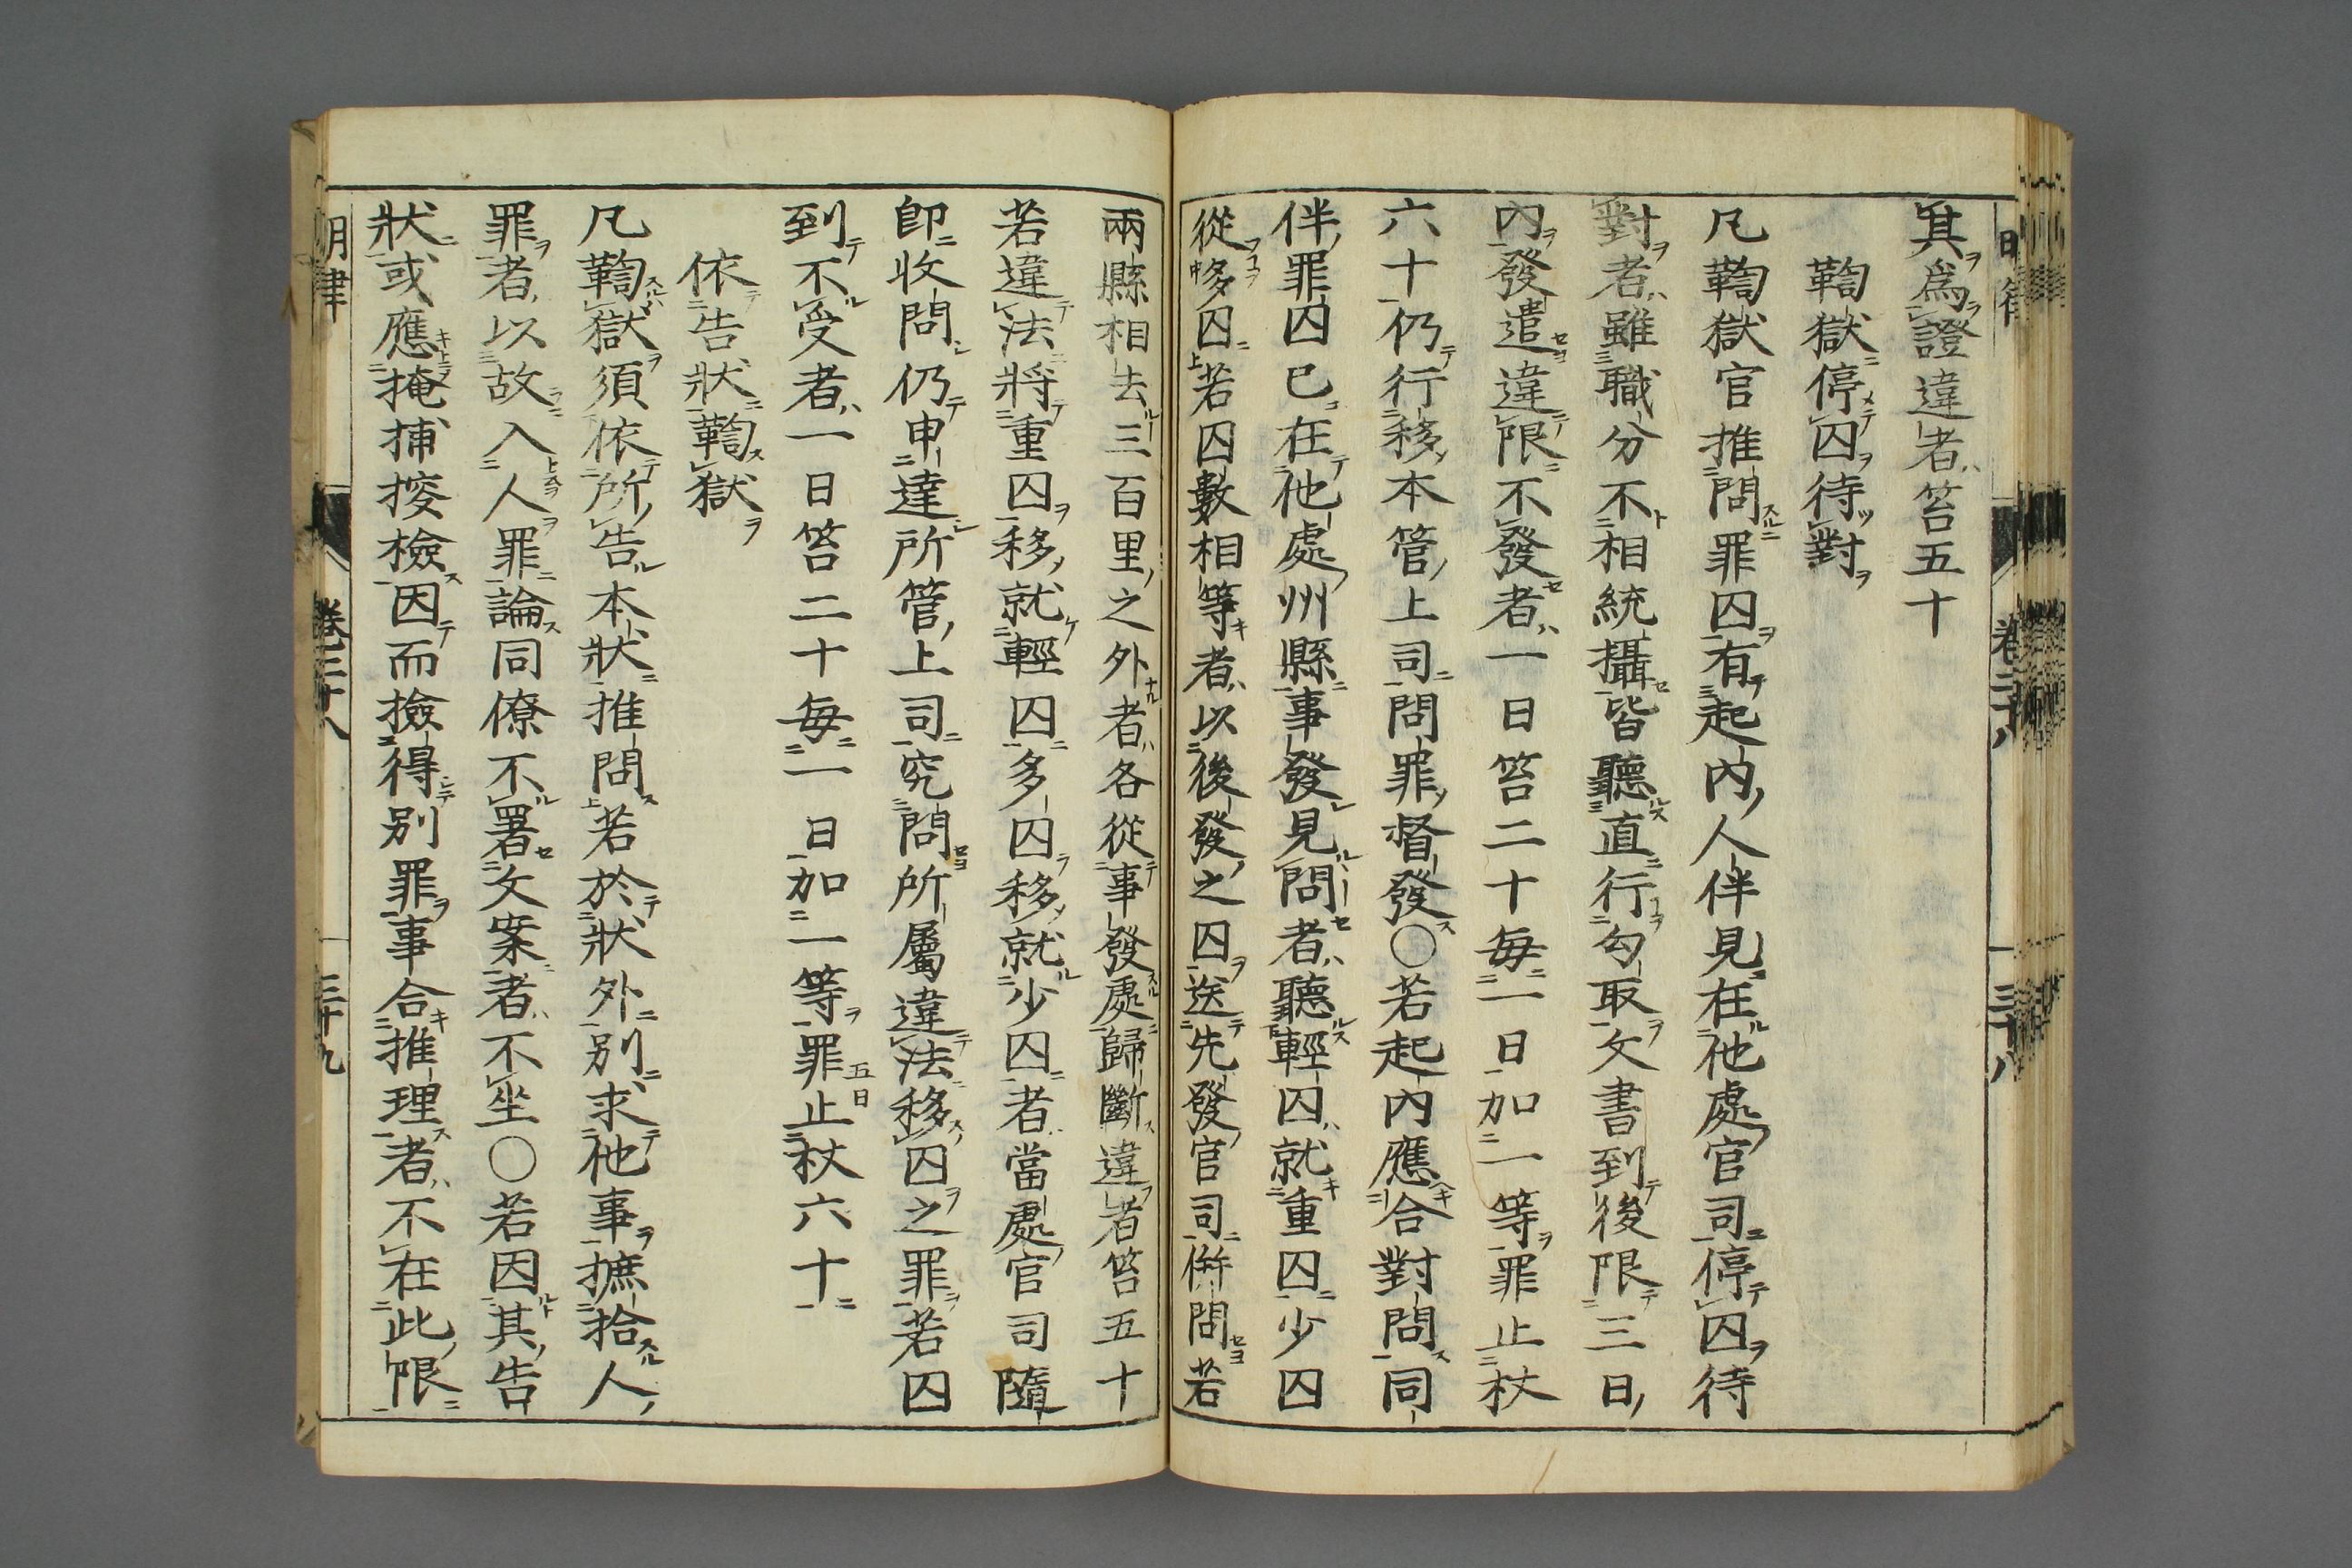 其爲證違者笞五十
鞫獄停囚待對
凡鞫獄官推問罪囚有起內人伴見在他處官司停囚待
對者雖職分不相統攝皆聽直行勾取文書到後限三日
內發遣違限不發者一日笞二十每一日加一等罪止杖
六十仍行移本管上司問罪督發○若起內應合對問同
伴罪囚已在他處州縣事發見問者聽輕囚就重囚少囚
從多囚若囚數相等者以後發之囚送先發官司併問若
兩縣相去三百里之外者各從事發處歸斷違者笞五十
若違法將重囚移就輕囚多囚移就少囚者當處官司隨
卽收問仍申達所管上司究問所屬違法移囚之罪若囚
到不受者一日笞二十每一日加一等罪止杖六十
五日
依告狀鞫獄
凡鞫獄須依所告本狀推問若於狀外別求他事摭拾人
罪者以故入人罪論同僚不署文案者不坐○若因其告
狀或應掩捕搜檢因而檢得別罪事合推理者不在此限
明律 卷二十八 三十九
卷二十八 三十八